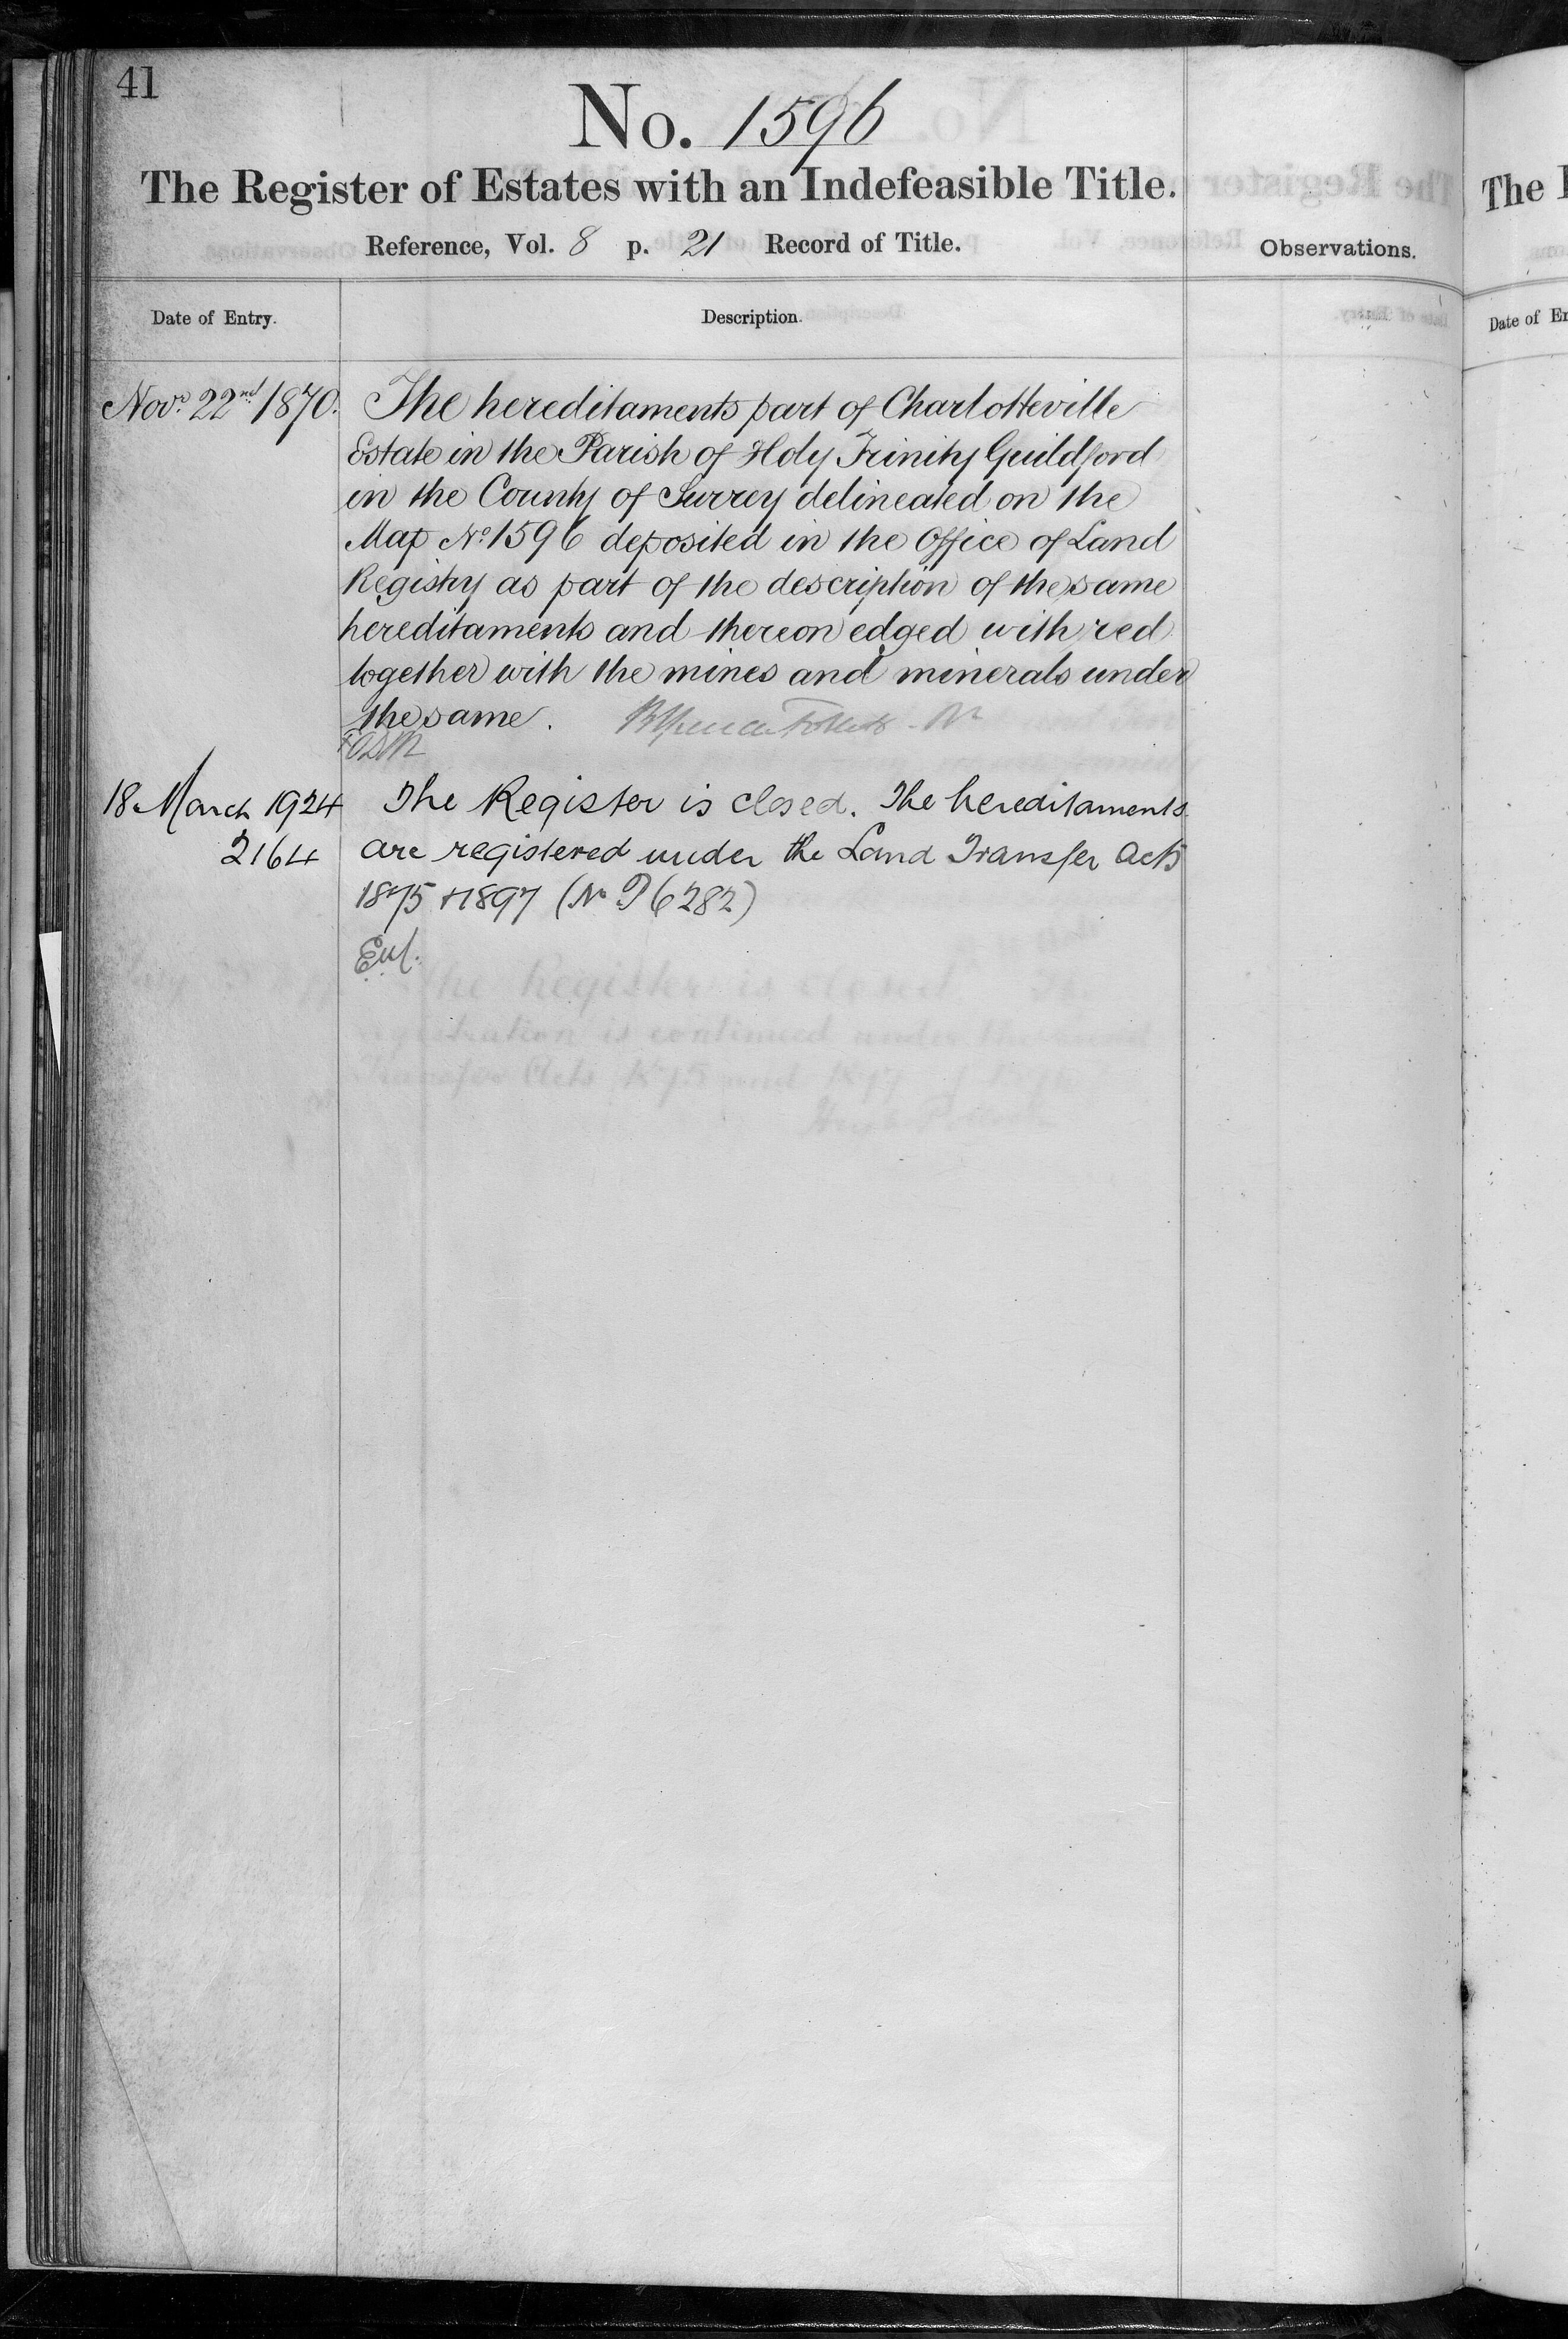 41
No. 1596
The Register of Estates with an Indefeasible Title.
Reference, Vol. 8 p. 21 Record of Title.
Observations.
Date of Entry.
Description.
Novr. 22nd 1870.
The hereditaments part of Charlotteville
Estate in the Parish of Holy Trinity Guildford
in the County of Surrey delineated on the
Map No. 1596 deposited in the Office of Land
Registry as part of the description of the same
hereditaments and thereon edged with red
together with the mines and minerals under
the same.
18 March 1924
2164
The Register is closed. The hereditaments
are registered under the Land Transfer Acts
1875 + 1897 (No P6282)
The
Date of